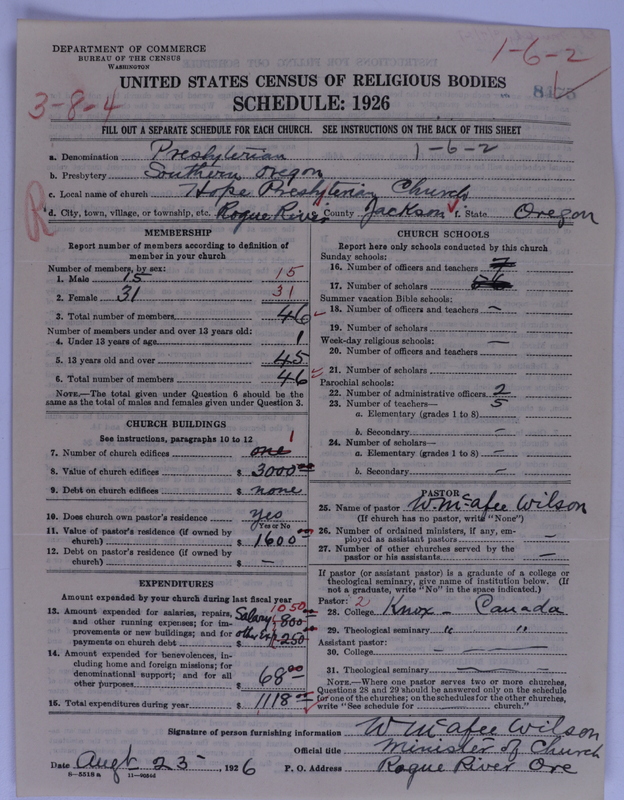 DEPARTMENT OF COMMERCE
BUREAU OF THE CENSUS
WASHINGTON
1-6-2
UNITED STATES CENSUS OF RELIGIOUS BODIES
3-8-4
SCHEDULE: 1926
FILL OUT A SEPARATE SCHEDULE FOR EACH CHURCH. SEE INSTRUCTIONS ON THE BACK OF THIS SHEET
a. Denomination Presbyterian 1-6-2
b. Presbytery Southern Oregon
c. Local name of church Hope Presbyterian Church
d. City, town, village, or township, etc. Rogue River County Jackson State Oregon
R
MEMBERSHIP
Report number of members according to definition of
member in your church
Number of members, by sex:
1. Male 15 15
2. Female 31 31
3. Total number of members 46
Number of members under and over 13 years old:
4. Under 13 years of age 1
5. 13 years old and over 45
6. Total number of members 46
NOTE.—The total given under Question 6 should be the
same as the total of males and females given under Question 3.
CHURCH BUILDINGS
See instructions, paragraphs 10 to 12
7. Number of church edifices one 1
8. Value of church edifices $ 3000 00
9. Debt on church edifices $ none
10. Does church own pastor's residence yes
(Yes or No)
11. Value of pastor's residence (if owned by
church) $ 1600 00
12. Debt on pastor's residence (if owned by
church) $ —
EXPENDITURES
Amount expended by your church during last fiscal year
13. Amount expended for salaries, repairs,
and other running expenses; for im-
provements or new buildings; and for
payments on church debt
1050
Salary $ 800
other Ex $ 250
14. Amount expended for benevolences, in-
cluding home and foreign missions; for
denominational support; and for all
other purposes $ 68 00
15. Total expenditures during year $ 1118 00
CHURCH SCHOOLS
Report here only schools conducted by this church
Sunday schools:
16. Number of officers and teachers 7
17. Number of scholars
Summer vacation Bible schools:
18. Number of officers and teachers —
19. Number of scholars
Week-day religious schools: —
20. Number of officers and teachers
21. Number of scholars
Parochial schools:
22. Number of administrative officers 2
23. Number of teachers— 5
a. Elementary (grades 1 to 8)
b. Secondary —
24. Number of scholars—
a. Elementary (grades 1 to 8) —
b. Secondary —
PASTOR
25. Name of pastor W. McAfee Wilson
(If church has no pastor, write "None")
26. Number of ordained ministers, if any, em-
ployed as assistant pastors —
27. Number of other churches served by the
pastor or his assistants —
If pastor (or assistant pastor) is a graduate of a college or
theological seminary, give name of institution below. (If
not a graduate, write "No" in the space indicated.)
Pastor: 2
28. College Knox — Canada
29. Theological seminary " "
Assistant pastor:
30. College
31. Theological seminary
NOTE.—Where one pastor serves two or more churches,
Questions 28 and 29 should be answered only on the schedule
for one of the churches; on the schedules for the other churches,
write "See schedule for church."
Signature of person furnishing information W McAfee Wilson
Official title Minister of Church
Date Augt 23 -, 1926 P. O. Address Rogue River Ore
6—5518a 11—90046